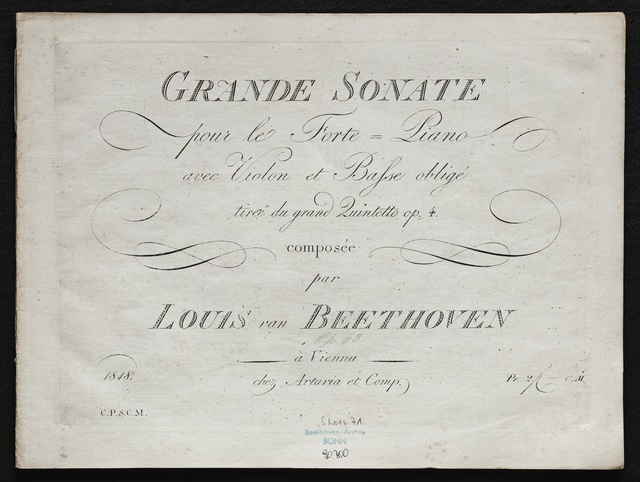 GRANDE SONATE
pour le Forte = Piano
avec Violon et Basse obligé
tireé du grand Quintetto op. 4.
composée
par
LOUIS van BEETHOVEN
op 63
à Vienna
1818. chez Artaria et Comp. Pr. 2f C.M.
C.P.S.C.M.
Beethoven-Archiv
BONN